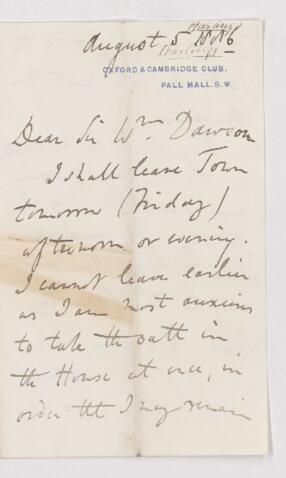 August 5 1886
Hastings
OXFORD & CAMBRIDGE CLUB,
PALL MALL, S.W.
Dear Sir Wm Dawson
I shall leave Town
tomorrow (Friday)
afternoon or evening.
I cannot leave earlier
as I am most anxious
to take the oath in
the House at once, in
order tht I may remain